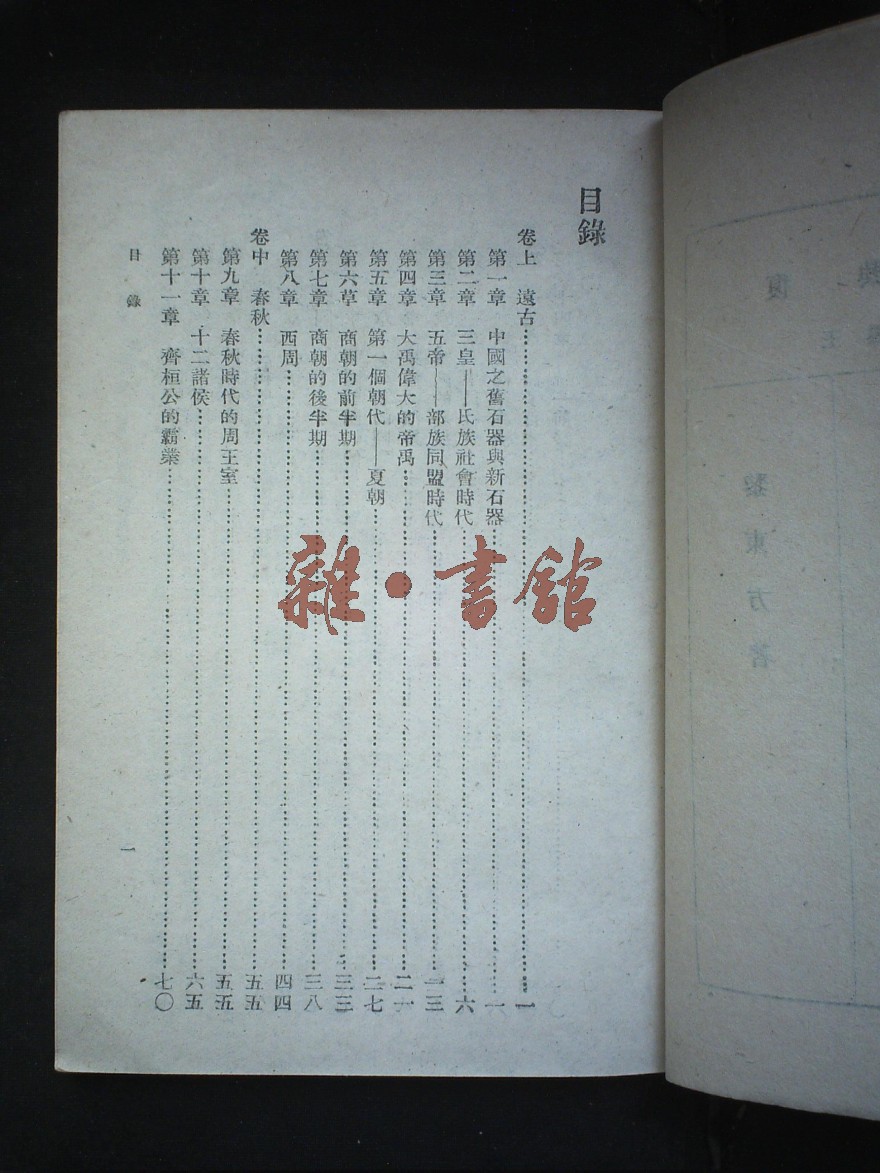 黎東方著
目錄
卷上 遠古……一
第一章 中國之舊石器與新石器……一
第二章 三皇——氏族社會時代……六
第三章 五帝——部族同盟時代……一三
第四章 大禹偉大的帝禹……二一
第五章 第一個朝代——夏朝……二七
第六草 商朝的前半期……三三
第七章 商朝的後半期……三八
第八章 西周……四四
卷中 春秋……五五
第九章 春秋時代的周王室……五五
第十章 十二諸侯……六五
第十一章 齊桓公的霸業……七〇
目錄
一
雜·書館